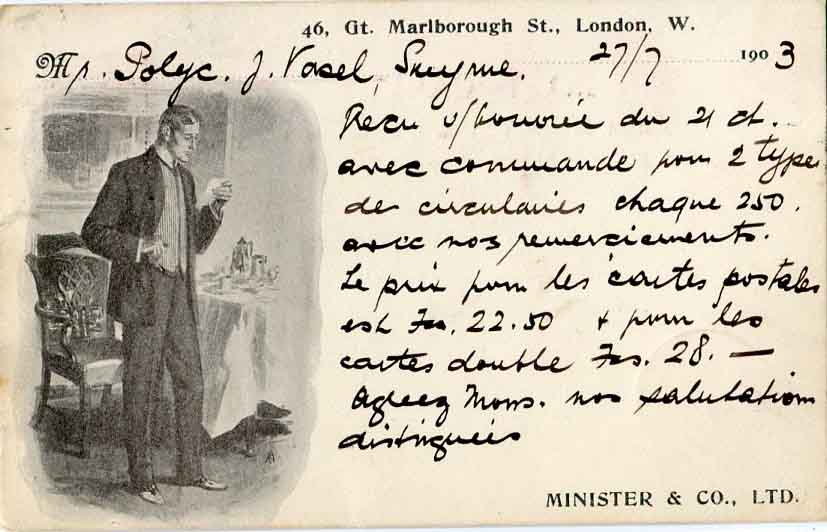 46, Gt. Marlborough St., London, W.
Mr. Polyc. J. Vasel, Smyrne. 27/7 1903
Recu v/honorée du 21 ct.
avec commande pour 2 type
de circulaires chaque 250.
avec nos remerciements.
Le prix pour les cartes postales
est Frs. 22.50 + pour les
cartes double Frs. 28. —
Agreez Mons. nos salutations
distinguées
MINISTER & CO., LTD.